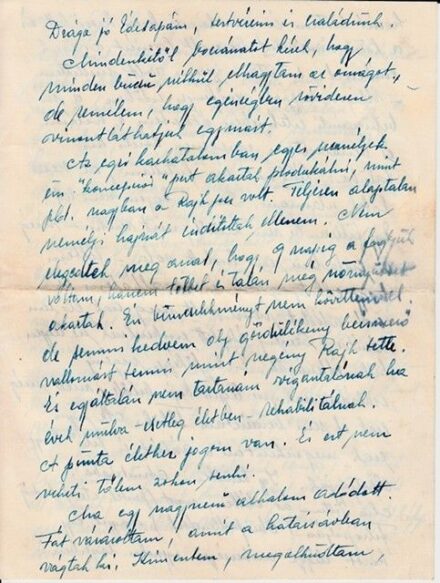 Drága jó Édesapám, testvéreim és családunk.
Mindenkitől bocsánatot kérek, hogy
minden búcsú nélkül, elhagytam az országot,
de remélem, hogy egészségben rövidesen
viszontláthatjuk egymást.
Az egri hatalomban egyes személyek
"koncepciós" pert akartak produkálni, mint
pld. nagyban a Rajk per volt. Teljesen alaptalan
személyi hajszát indítottak ellenem. Nem
elégedtek meg azzal, hogy 9 napig a foglyuk
voltam, hanem többet és talán még szörnyűbbet
akartak. Én bűncselekményt nem követtem el,
de semmi kedvem oly gördülékeny beismerő
vallomást tenni mint szegény Rajk tette.
És egyáltalán nem tartanám vígasztalónak ha
évek múlva - esetleg életben - rehabilitálnak.
A puszta élethez jogom van. És ezt nem
veheti tőlem zokon senki.
Ma egy nagyszerű alkalom adódott.
Fát vásároltam, amit a határsávban
vágtak ki. Kimentem, megalkudtam,